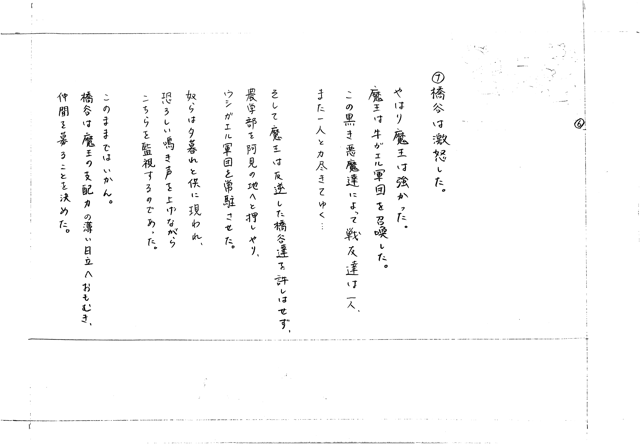 ⑥
⑦橋谷は激怒した。
やはり魔王は強かった。
魔王は牛ガエル軍団を召喚した。
この黒き悪魔達によって戦友達は一人、
また一人と力尽きてゆく…
そして魔王は反逆した橋谷達を許しはせず、
農学部を阿見の地へと押しやり、
ウシガエル軍団を常駐させた。
奴らは夕暮れと供に現われ、
恐ろしい鳴き声を上げながら
こちらを監視するのであった。
このままではいかん。
橋谷は魔王の支配力の薄い日立へおもむき、
仲間を募ることを決めた。